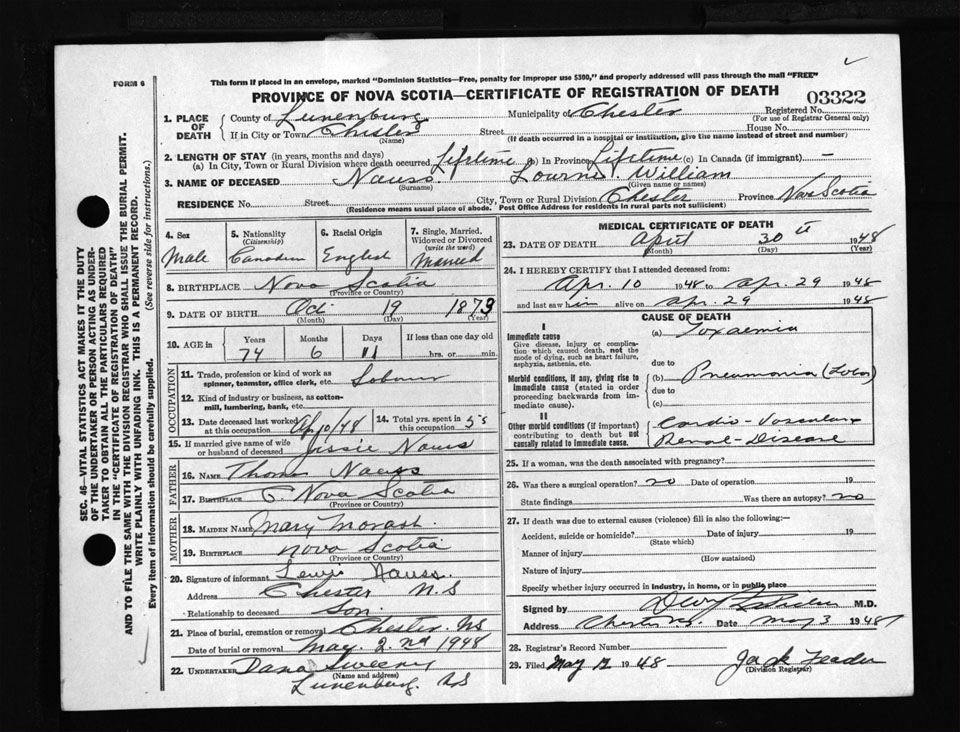 This form if placed in an envelope, marked "Dominion Statistics—Free, penalty for improper use $300," and properly addressed will pass through the mail "FREE"
FORM 6
PROVINCE OF NOVA SCOTIA—CERTIFICATE OF REGISTRATION OF DEATH
03322
1. PLACE OF DEATH
County of Lunenburg Municipality of Chester Registered No.
(For use of Registrar General only)
If in City or Town Chester Street House No.
(Name) (If death occurred in a hospital or institution, give the name instead of street and number)
2. LENGTH OF STAY (in years, months and days)
(a) In City, Town or Rural Division where death occurred Lifetime (b) In Province Lifetime (c) In Canada (if immigrant) —
3. NAME OF DECEASED Nauss William
(Surname) (Given name or names)
RESIDENCE No. Street City, Town or Rural Division Chester Province Nova Scotia
(Residence means usual place of abode. Post Office Address for residents in rural parts not sufficient)
4. Sex
Male
5. Nationality
(Citizenship)
Canadian
6. Racial Origin
English
7. Single, Married, Widowed or Divorced
(write the word)
Married
8. BIRTHPLACE Nova Scotia
(Province or Country)
9. DATE OF BIRTH Oct 19 1873
(Month) (Day) (Year)
10. AGE in Years Months Days If less than one day old
74 6 11 hrs. or min.
OCCUPATION
11. Trade, profession or kind of work as spinner, teamster, office clerk, etc. Labour
12. Kind of industry or business, as cotton-mill, lumbering, bank, etc.
13. Date deceased last worked at this occupation Ap/10/48
14. Total yrs. spent in this occupation
15. If married give name of wife or husband of deceased Jessie Nauss
FATHER
16. NAME Thom Nauss
17. BIRTHPLACE Nova Scotia
(Province or Country)
MOTHER
18. MAIDEN NAME Mary Morash
19. BIRTHPLACE Nova Scotia
(Province or Country)
20. Signature of informant Lewis Nauss.
Address Chester N.S
Relationship to deceased Son.
21. Place of burial, cremation or removal Chester. NS
Date of burial or removal May. 2nd 1948
22. UNDERTAKER Dana Sweeny
(Name and address)
Lunenburg. NS
MEDICAL CERTIFICATE OF DEATH
23. DATE OF DEATH April 30 1948
(Month) (Day) (Year)
24. I HEREBY CERTIFY that I attended deceased from:
Apr. 10 1948 to Apr. 29 1948
and last saw him alive on Apr. 29 1948
CAUSE OF DEATH
I
Immediate cause (a) Toxaemia
Give disease, injury or complication which caused death, not the mode of dying, such as heart failure, asphyxia, asthenia, etc.
due to
Morbid conditions, if any, giving rise to immediate cause (stated in order proceeding backwards from immediate cause).
(b) Pneumonia (Lobar)
due to
(c)
II
Other morbid conditions (if important) contributing to death but not causally related to immediate cause.
Cardio-Vascular
Renal-Disease
25. If a woman, was the death associated with pregnancy?
26. Was there a surgical operation? no Date of operation 19
State findings Was there an autopsy? no
27. If death was due to external causes (violence) fill in also the following:—
Accident, suicide or homicide? Date of injury 19
(State which)
Manner of injury
(How sustained)
Nature of injury
Specify whether injury occurred in industry, in home, or in public place
Signed by M.D.
Address Chester N.S. Date May 3 1948
28. Registrar's Record Number
29. Filed May 12 1948 Jack
(Division Registrar)
SEC. 46—VITAL STATISTICS ACT MAKES IT THE DUTY
OF THE UNDERTAKER OR PERSON ACTING AS UNDERTAKER TO OBTAIN ALL THE PARTICULARS REQUIRED
IN THE "CERTIFICATE OF REGISTRATION OF DEATH"
AND TO FILE THE SAME WITH THE DIVISION REGISTRAR WHO SHALL ISSUE THE BURIAL PERMIT.
WRITE PLAINLY WITH UNFADING INK. THIS IS A PERMANENT RECORD.
Every item of information should be carefully supplied. (See reverse side for instructions.)